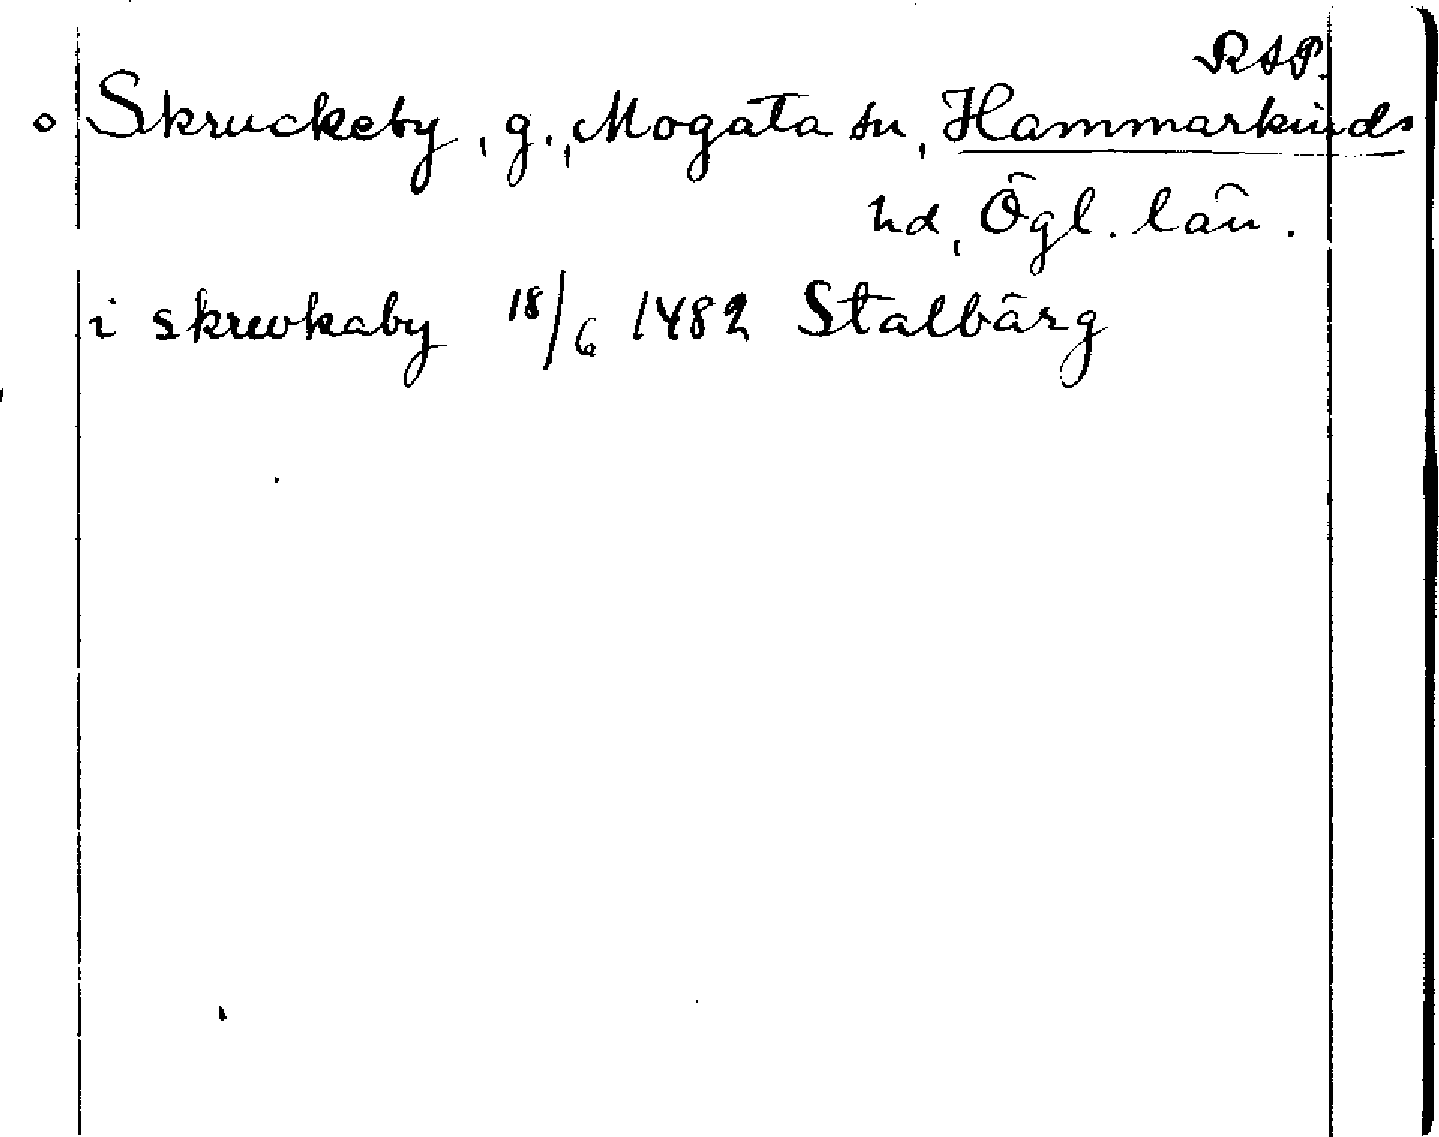 RAP.
Skruckeby, g., Mogata sn, Hammarkinds
hd, Ögl. län.
i skrwkaby 18/6 1482 Stalbärg